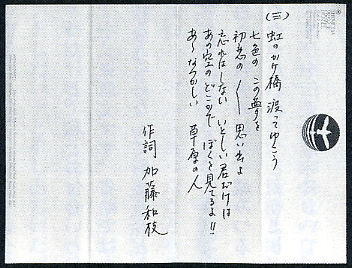 (三)
虹のかけ橋 渡ってゆこう
七色の この夢を
初恋の 思い出よ
忘れはしない いとしい君だけは
あの空の どこかで ぼくを見てるよ!!
あゝなつかしい 草原の人
作詞 加藤和枝